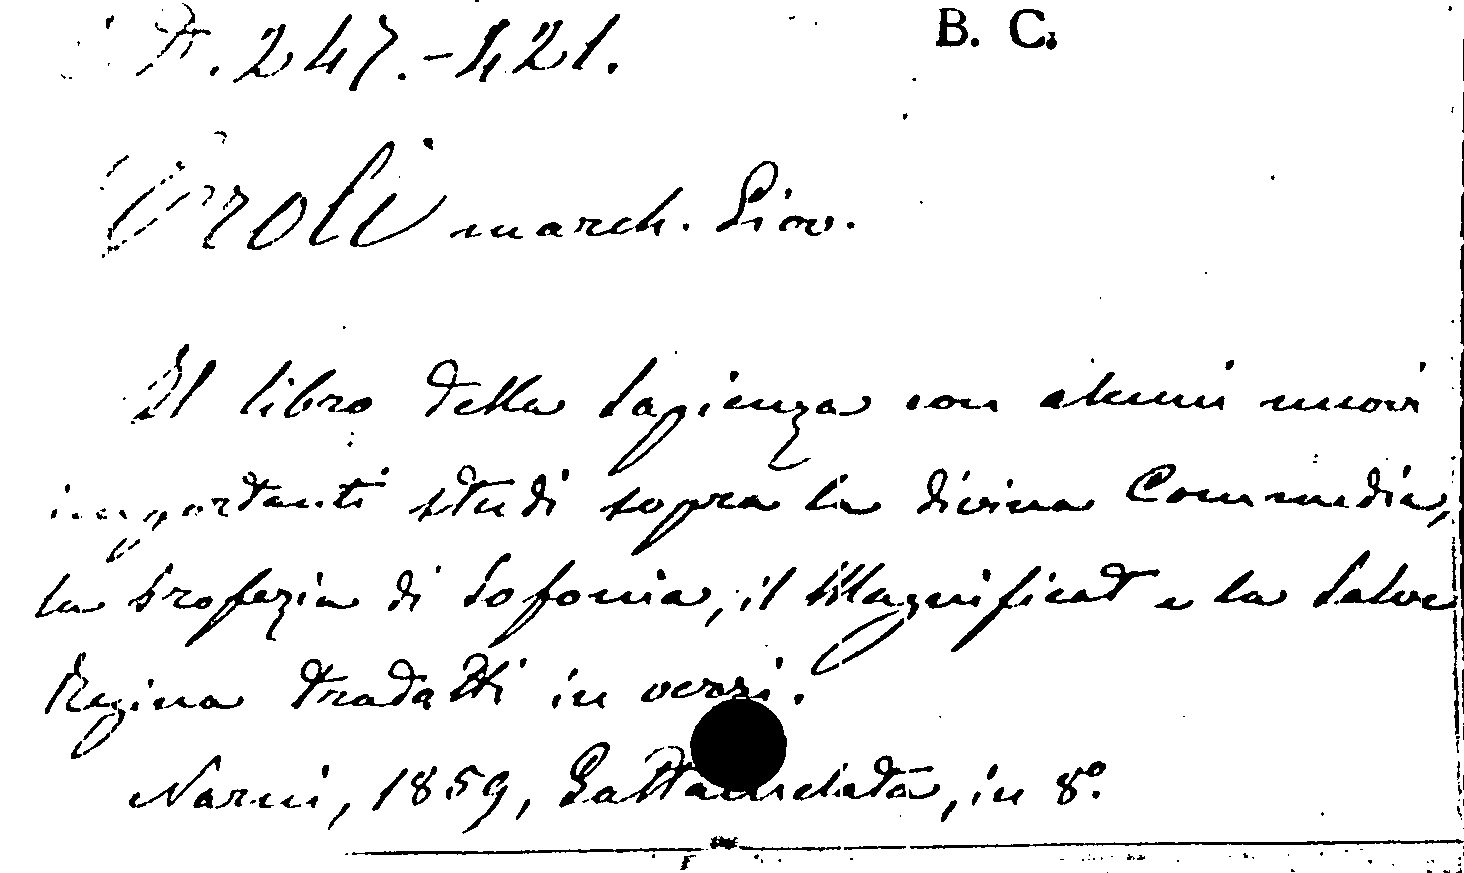 B. C.
F. 247.-421.
Eroli march. Giov.
Il libro della Sapienza con alcuni nuovi
importanti studi sopra la divina Commedia,
la profezia di Sofonia, il Magnificat e la Salve
Regina tradatti in versi.
Narni, 1859, Gattamelata, in 8°.